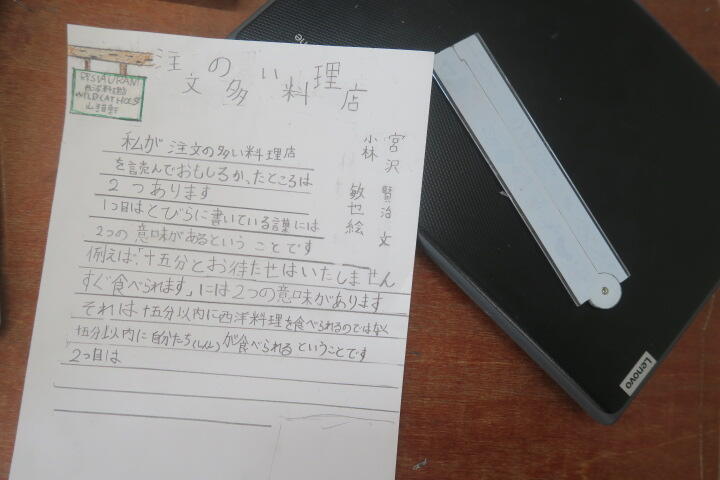 RESTAURANT
西洋料理店
WILDCAT HOUSE
山猫軒
注文の多い料理店
宮沢 賢治 文
小林 敏也 絵
私が 注文の多い料理店
を読んでおもしろか、たところは
2つあります
1つ目はとびらに書いている言葉には
2つの意味があるということです
例えば「十五分とお待たせはいたしません
すぐ食べられます」には2つの意味があります
それは十五分以内に西洋料理を食べられるのではなく
十五分以内に自分たち(しんし)が食べられるということです
2つ目は
Lenovo